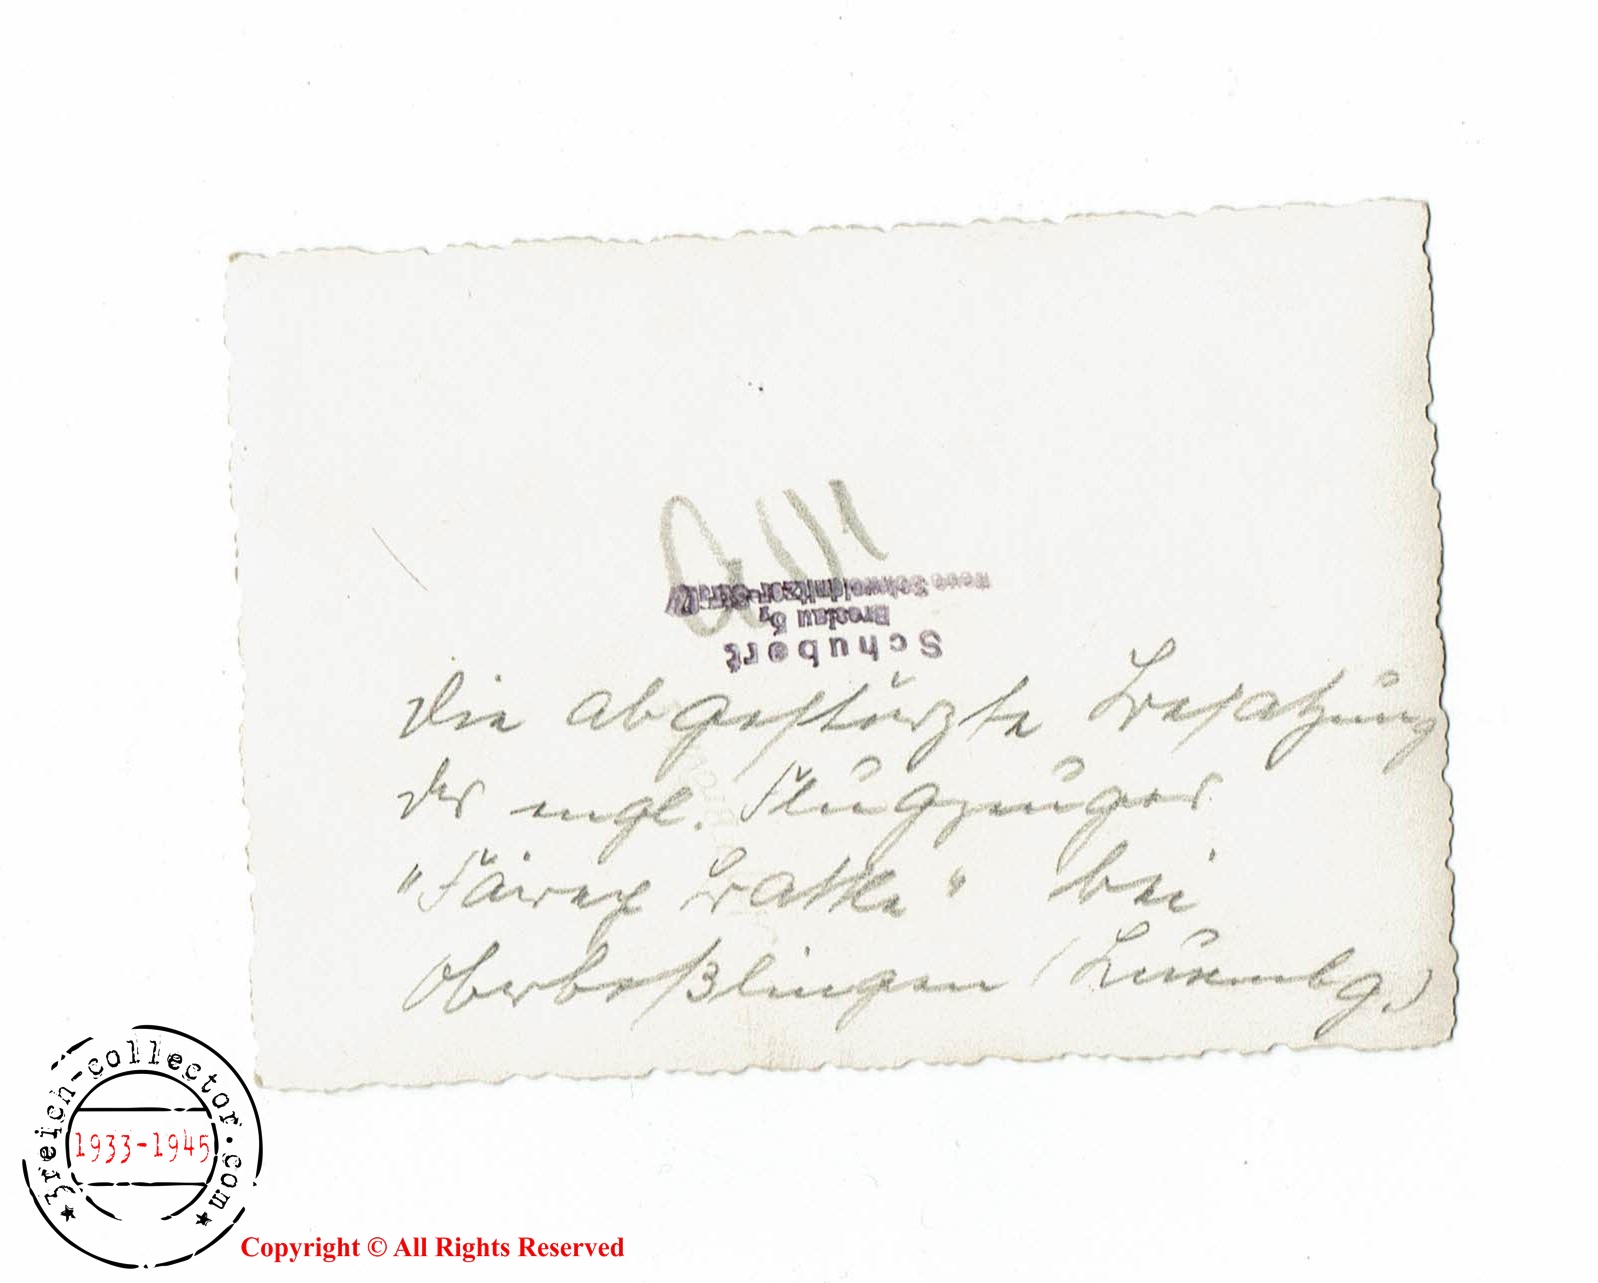 Schubert
Breslau 5,
Neue Schweidnitzer-Str.
Die abgestürzte Besatzung
des engl. Flugzeuges
"Fairey Battle" bei
Oberbeßlingen (Luxembg.)
3reich-collector.com
1933-1945
Copyright © All Rights Reserved